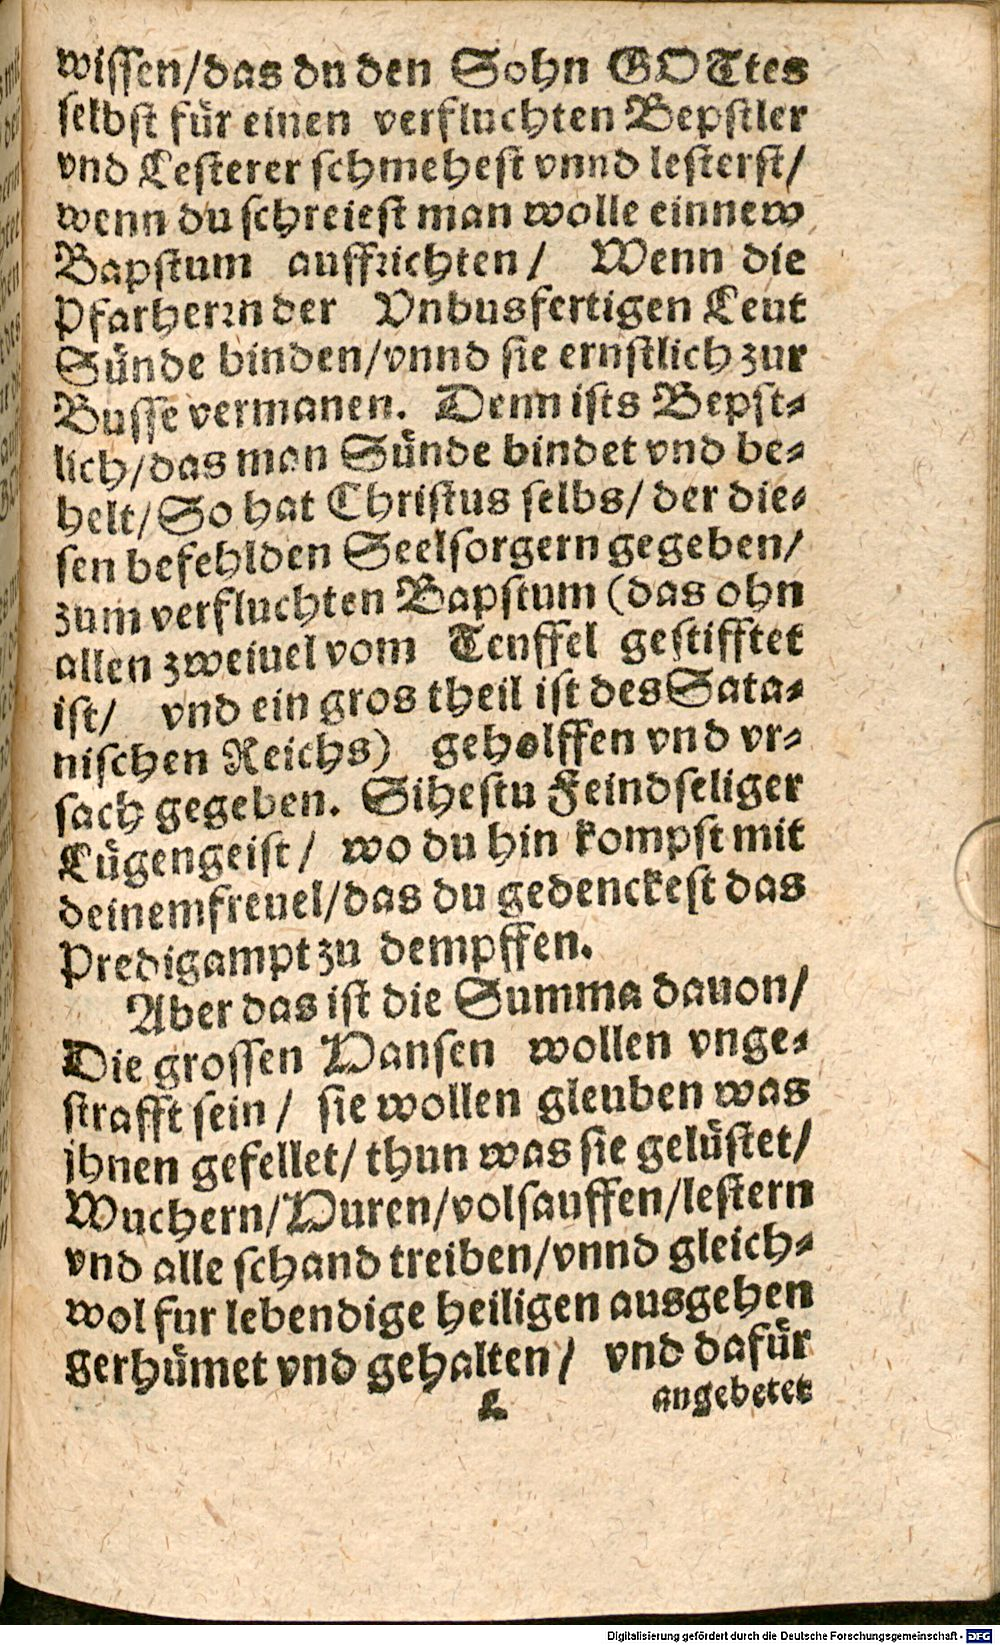 wissen/das du den Sohn GOTtes
selbst für einen verfluchten Bepstler
vnd Lesterer schmehest vnnd lesterst/
wenn du schreiest man wolle ein new
Bapstum auffrichten/ Wenn die
Pfarherrn der Vnbusfertigen Leut
Sünde binden/vnnd sie ernstlich zur
Busse vermanen. Denn ists Bepst-
lich/das man Sünde bindet vnd be-
helt/So hat Christus selbs/ der die-
sen befehl den Seelsorgern gegeben/
zum verfluchten Bapstum (das ohn
allen zweiuel vom Teuffel gestifftet
ist/ vnd ein gros theil ist des Sata-
nischen Reichs) geholffen vnd vr-
sach gegeben. Sihestu Feindseliger
Lügengeist/ wo du hin kompst mit
deinem freuel/das du gedenckest das
Predigampt zu dempffen.
Aber das ist die Summa dauon/
Die grossen Hansen wollen vnge-
strafft sein/ sie wollen gleuben was
ihnen gefellet/ thun was sie gelüstet/
Wuchern/Huren/volsauffen/lestern
vnd alle schand treiben/vnnd gleich-
wol fur lebendige heiligen ausgehen
gerhümet vnd gehalten/ vnd dafür
L angebetet
Digitalisierung gefördert durch die Deutsche Forschungsgemeinschaft - DFG